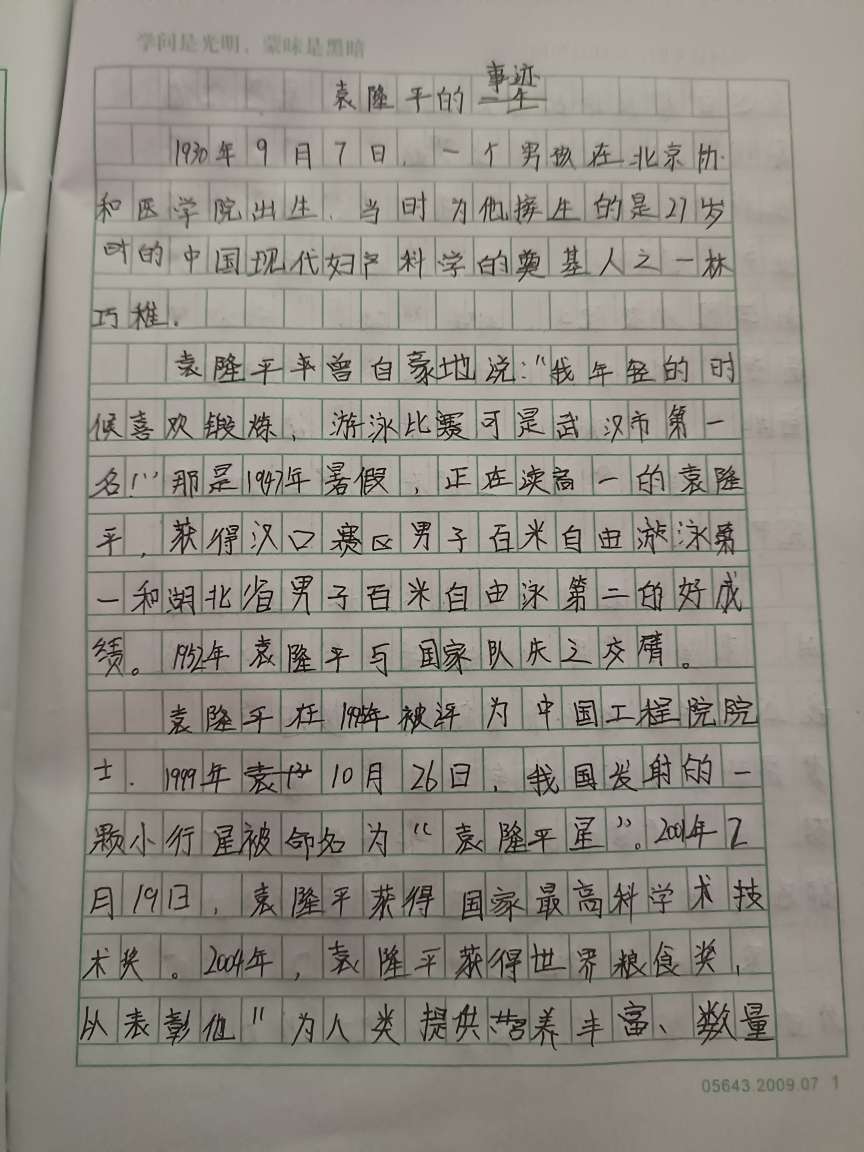 学问是光明，蒙昧是黑暗
袁隆平的事迹
1930年9月7日，一个男孩在北京协
和医学院出生，当时为他接生的是27岁
时的中国现代妇产科学的奠基人之一林
巧稚.
袁隆平平曾自豪地说："我年轻的时
候喜欢锻炼，游泳比赛可是武汉市第一
名!"那是1947年暑假，正在读高一的袁隆
平，获得汉口赛区男子百米自由游泳第
一和湖北省男子百米自由泳第二的好成
绩。1952年袁隆平与国家队失之交臂。
袁隆平在1995年被评为中国工程院院
士.1999年10月26日，我国发射的一
颗小行星被命名为“袁隆平星”。2001年2
月19日，袁隆平获得国家最高科学术技
术奖。2004年，袁隆平获得世界粮食奖，
以表彰他"为人类提供营养丰富、数量
05643.2009.07 1